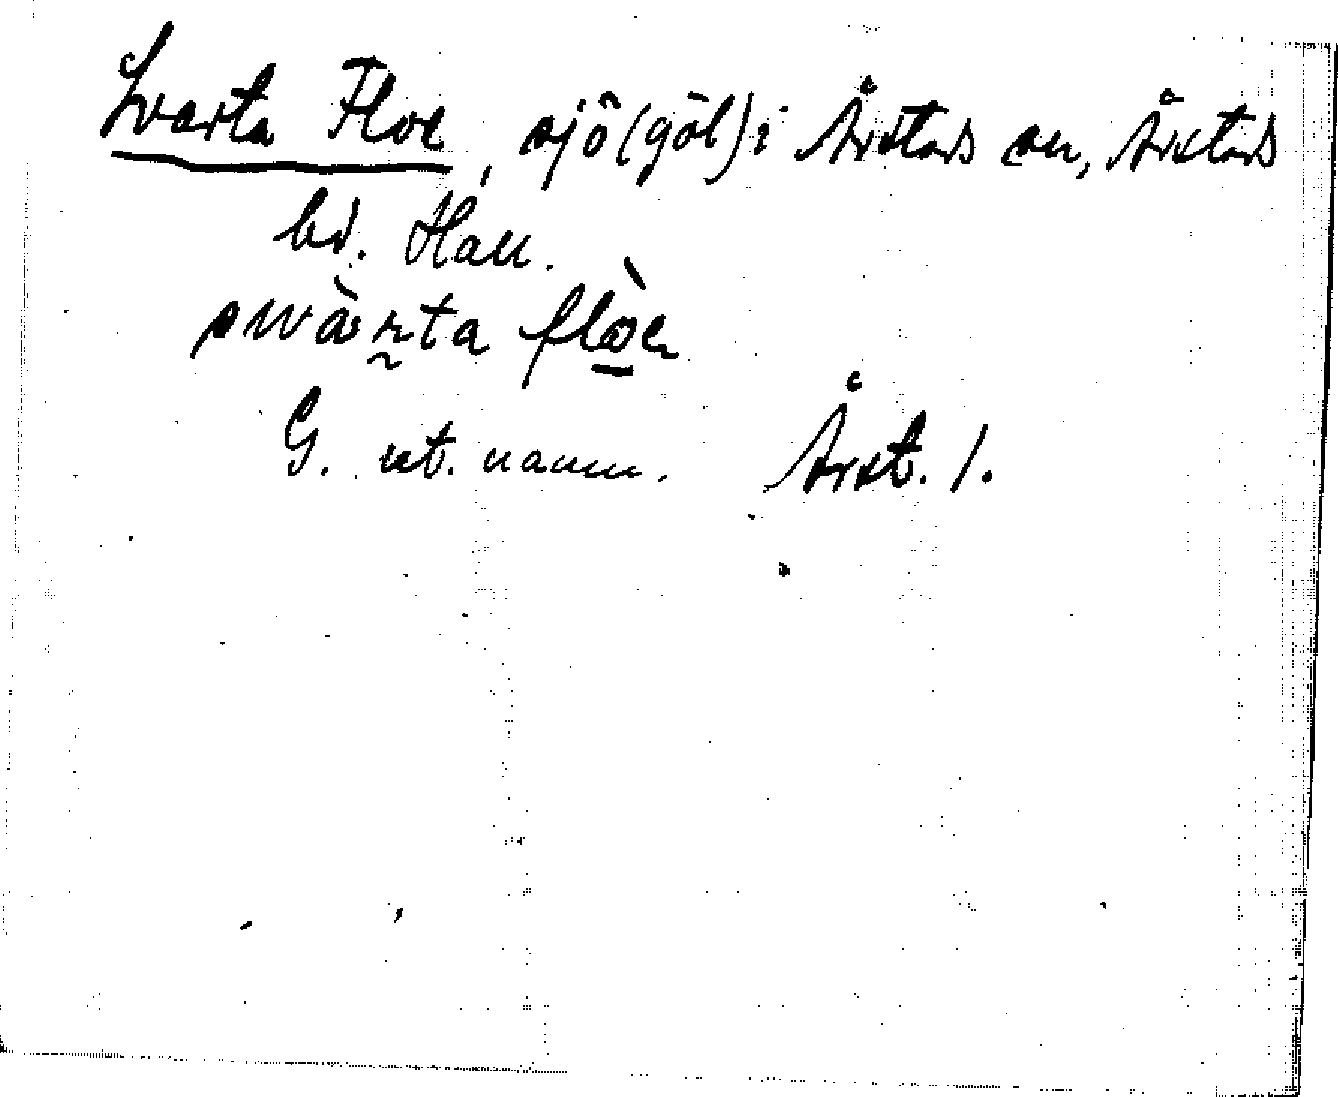 Svarta Floe, sjö (göl) i Årstads sn, Årstads
hd. Hall.
swàrta flòe
G. ut. namn. Årst. 1.